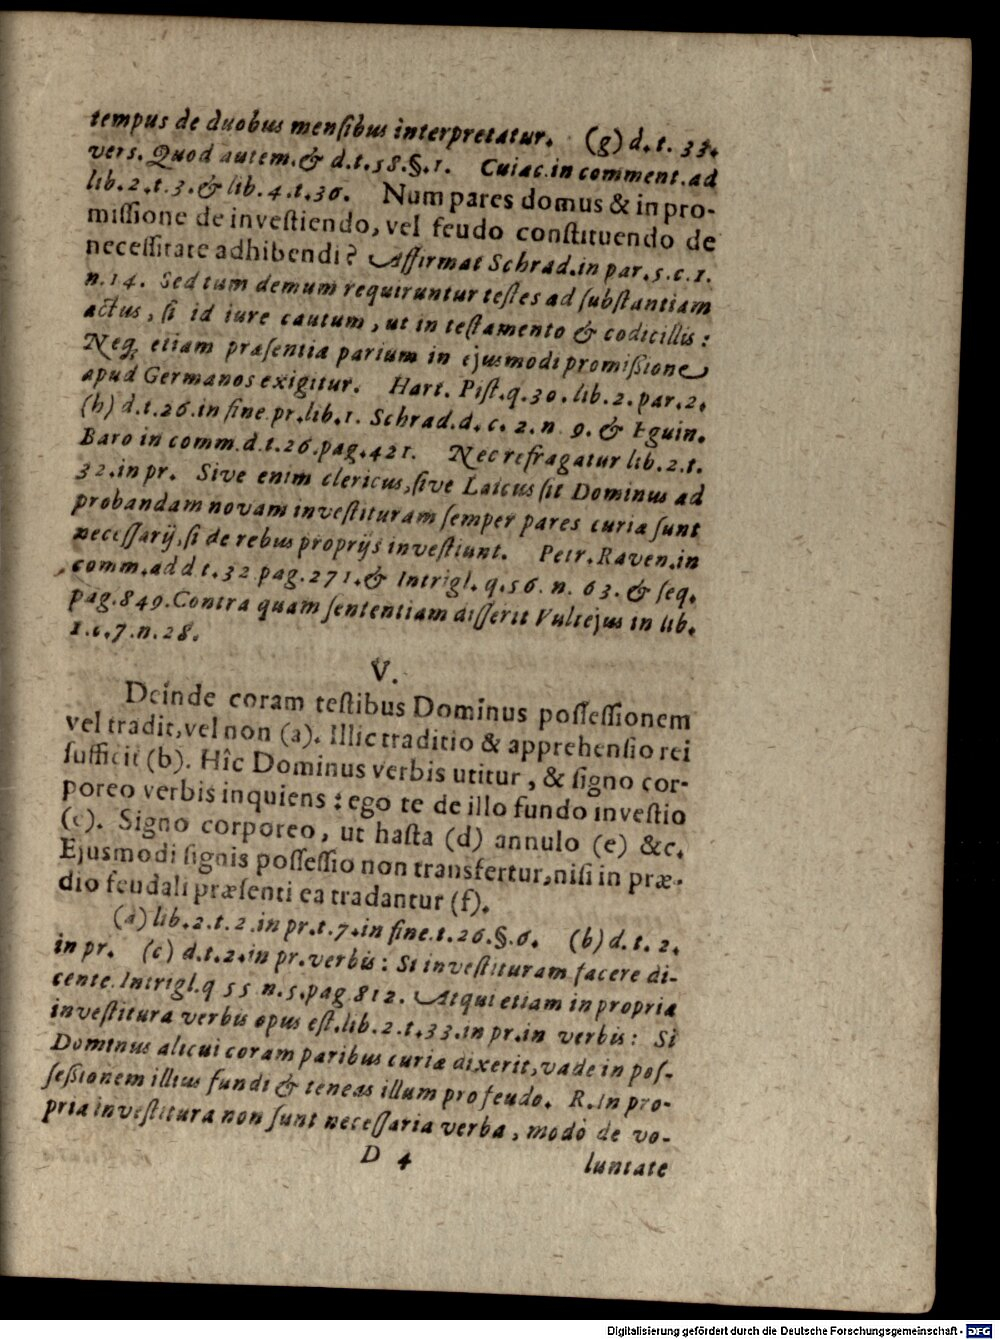 tempus de duobus mensibus interpretatur. (g) d. t. 33.
vers. Quod autem. & d. t. 58. §. 1. Cuiac. in comment. ad
lib. 2. t. 3. & lib. 4. t. 36. Num pares domus & in pro-
missione de investiendo, vel feudo constituendo de
necessitate adhibendi? Affirmat Schrad. in par. 5. c. 1.
n. 14. Sed tum demum requiruntur testes ad substantiam
actus, si id iure cautum, ut in testamento & codicillis:
Neq; etiam præsentia parium in ejusmodi promißione
apud Germanos exigitur. Hart. Pist. q. 30. lib. 2. par. 2.
(h) d. t. 26. in fine pr. lib. 1. Schrad. d. c. 2. n. 9. & Eguin.
Baro in comm. d. t. 26. pag. 421. Nec refragatur lib. 2. t.
32. in pr. Sive enim clericus, sive Laicus sit Dominus ad
probandam novam investituram semper pares curiæ sunt
necessarij, si de rebus proprijs investiunt. Petr. Raven. in
comm. ad d t. 32 pag. 271. & Intrigl. q. 56. n. 63. & seq.
pag. 849. Contra quam sententiam disserit Vultejus in lib.
1. c. 7. n. 28.
V.
Deinde coram testibus Dominus possessionem
vel tradit, vel non (a). Illic traditio & apprehensio rei
sufficit (b). Hîc Dominus verbis utitur, & signo cor-
poreo verbis inquiens: ego te de illo fundo investio
(c). Signo corporeo, ut hasta (d) annulo (e) &c.
Ejusmodi signis possessio non transfertur, nisi in præ-
dio feudali præsenti ea tradantur (f).
(a) lib. 2. t. 2. in pr. t. 7. in fine. t. 26. §. 6. (b) d. t. 2.
in pr. (c) d. t. 2. in pr. verbis: Si investituram facere di-
cente. Intrigl. q 55 n. 5. pag 812. Atqui etiam in propria
investitura verbis opus est. lib. 2. t. 33. in pr. in verbis: Si
Dominus alicui coram paribus curiæ dixerit, vade in pos-
seßionem illius fundi & teneas illum pro feudo. R. In pro-
pria investitura non sunt necessaria verba, modò de vo-
D 4 luntate
Digitalisierung gefördert durch die Deutsche Forschungsgemeinschaft - DFG